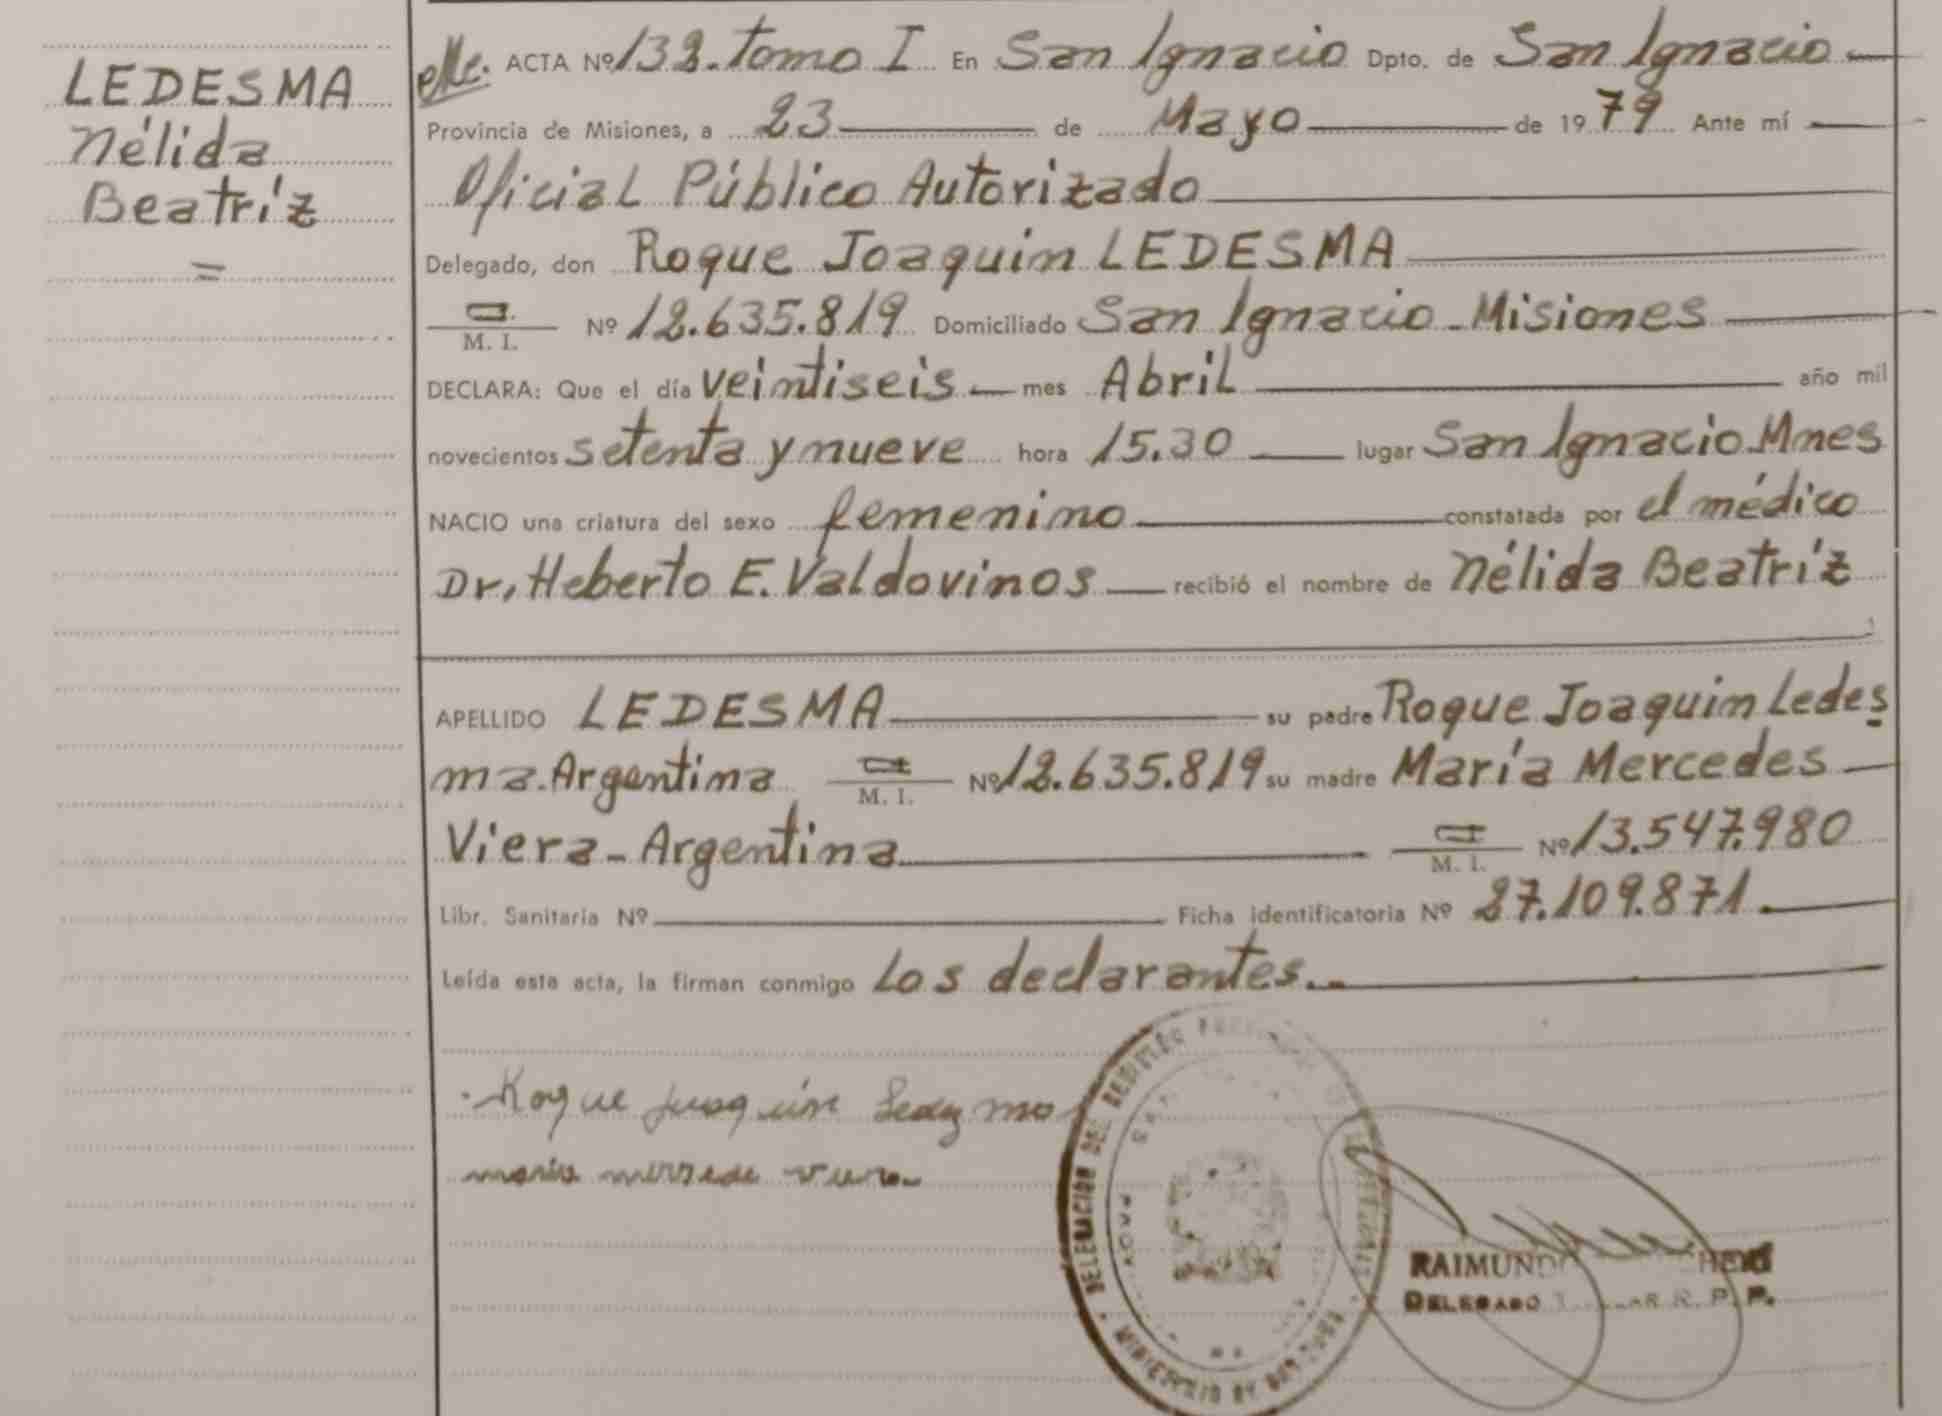 LEDESMA
Nélida
Beatríz
=
ACTA Nº 132. tomo I En San Ignacio Dpto. de San Ignacio
Provincia de Misiones, a 23 de Mayo de 19 79 Ante mí
Oficial Público Autorizado
Delegado, don Roque Joaquin LEDESMA
M. I. Nº 12.635.819 Domiciliado San Ignacio - Misiones
DECLARA: Que el día veintiseis mes Abril año mil
novecientos setenta y nueve hora 15.30 lugar San Ignacio. Mnes
NACIO una criatura del sexo femenino constatada por el médico
Dr, Heberto E. Valdovinos recibió el nombre de Nélida Beatríz
APELLIDO LEDESMA su padre Roque Joaquin Ledes
ma. Argentina M. I. Nº 12.635.819 su madre María Mercedes
Viera - Argentina M. I. Nº 13.547.980
Libr. Sanitaria Nº Ficha identificatoria Nº 27.109.871.
Leída esta acta, la firman conmigo Los declarantes.
Roque
maria
DELEGACION DEL REGISTRO
MINISTERIO DE
RAIMUNDO
DELEGADO R. P. P.